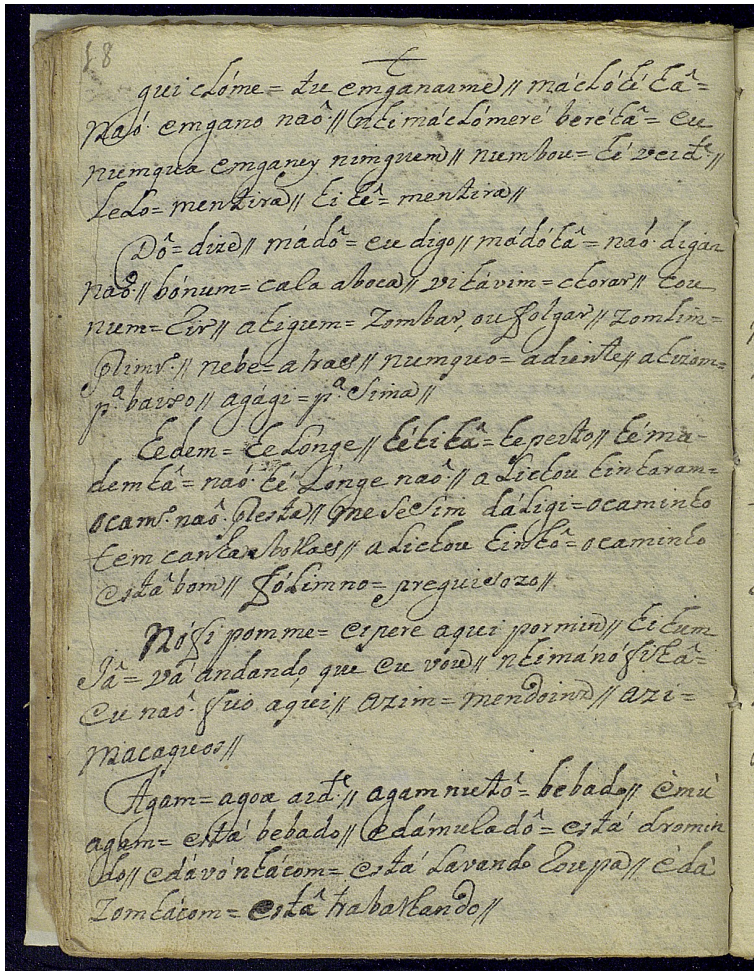 18
qui clóme = tu emganarme // má cló hé hâ =
Naó emgano naô // nhimáclómeré beréhâ = eu
numqua emganey nimguem // numbou = hé verd.e //
hedo = mentira // hi hê = mentira //
Dô = dize // mádô = eu digo // mádóhâ = naó digas
naô // bónum = cala aboca // vihávim = chorar // hou
num = Rir // ahigum = Zombar, ou folgar //
nebe = atras // numquo = adiente //
p.a baixo // agági = p.a Sima //
hedem = he Longe // héhihâ = he perto // hé ma
demhâ = naó hé Lónge naô // aLichou hinharam =
ocam.o naô presta // dáligi = ocaminho
tem // aLichou hinhô = ocaminho
está bom // = preguisozo //
Nófi pomme = espere aqui pormin //
Jâ = vá andando, que eu vou // nhimánófihâ =
Eu naô fico aqui // azim = mendoinz // azi =
macaquos //
Agam = agoa ard.e // agam nuhô = bebado // èmù
agam = está bebado // edámuladô = está dromin
do // edávónhácom = está Lavando Roupa // èdà
Zomhácom = está trabalhando //